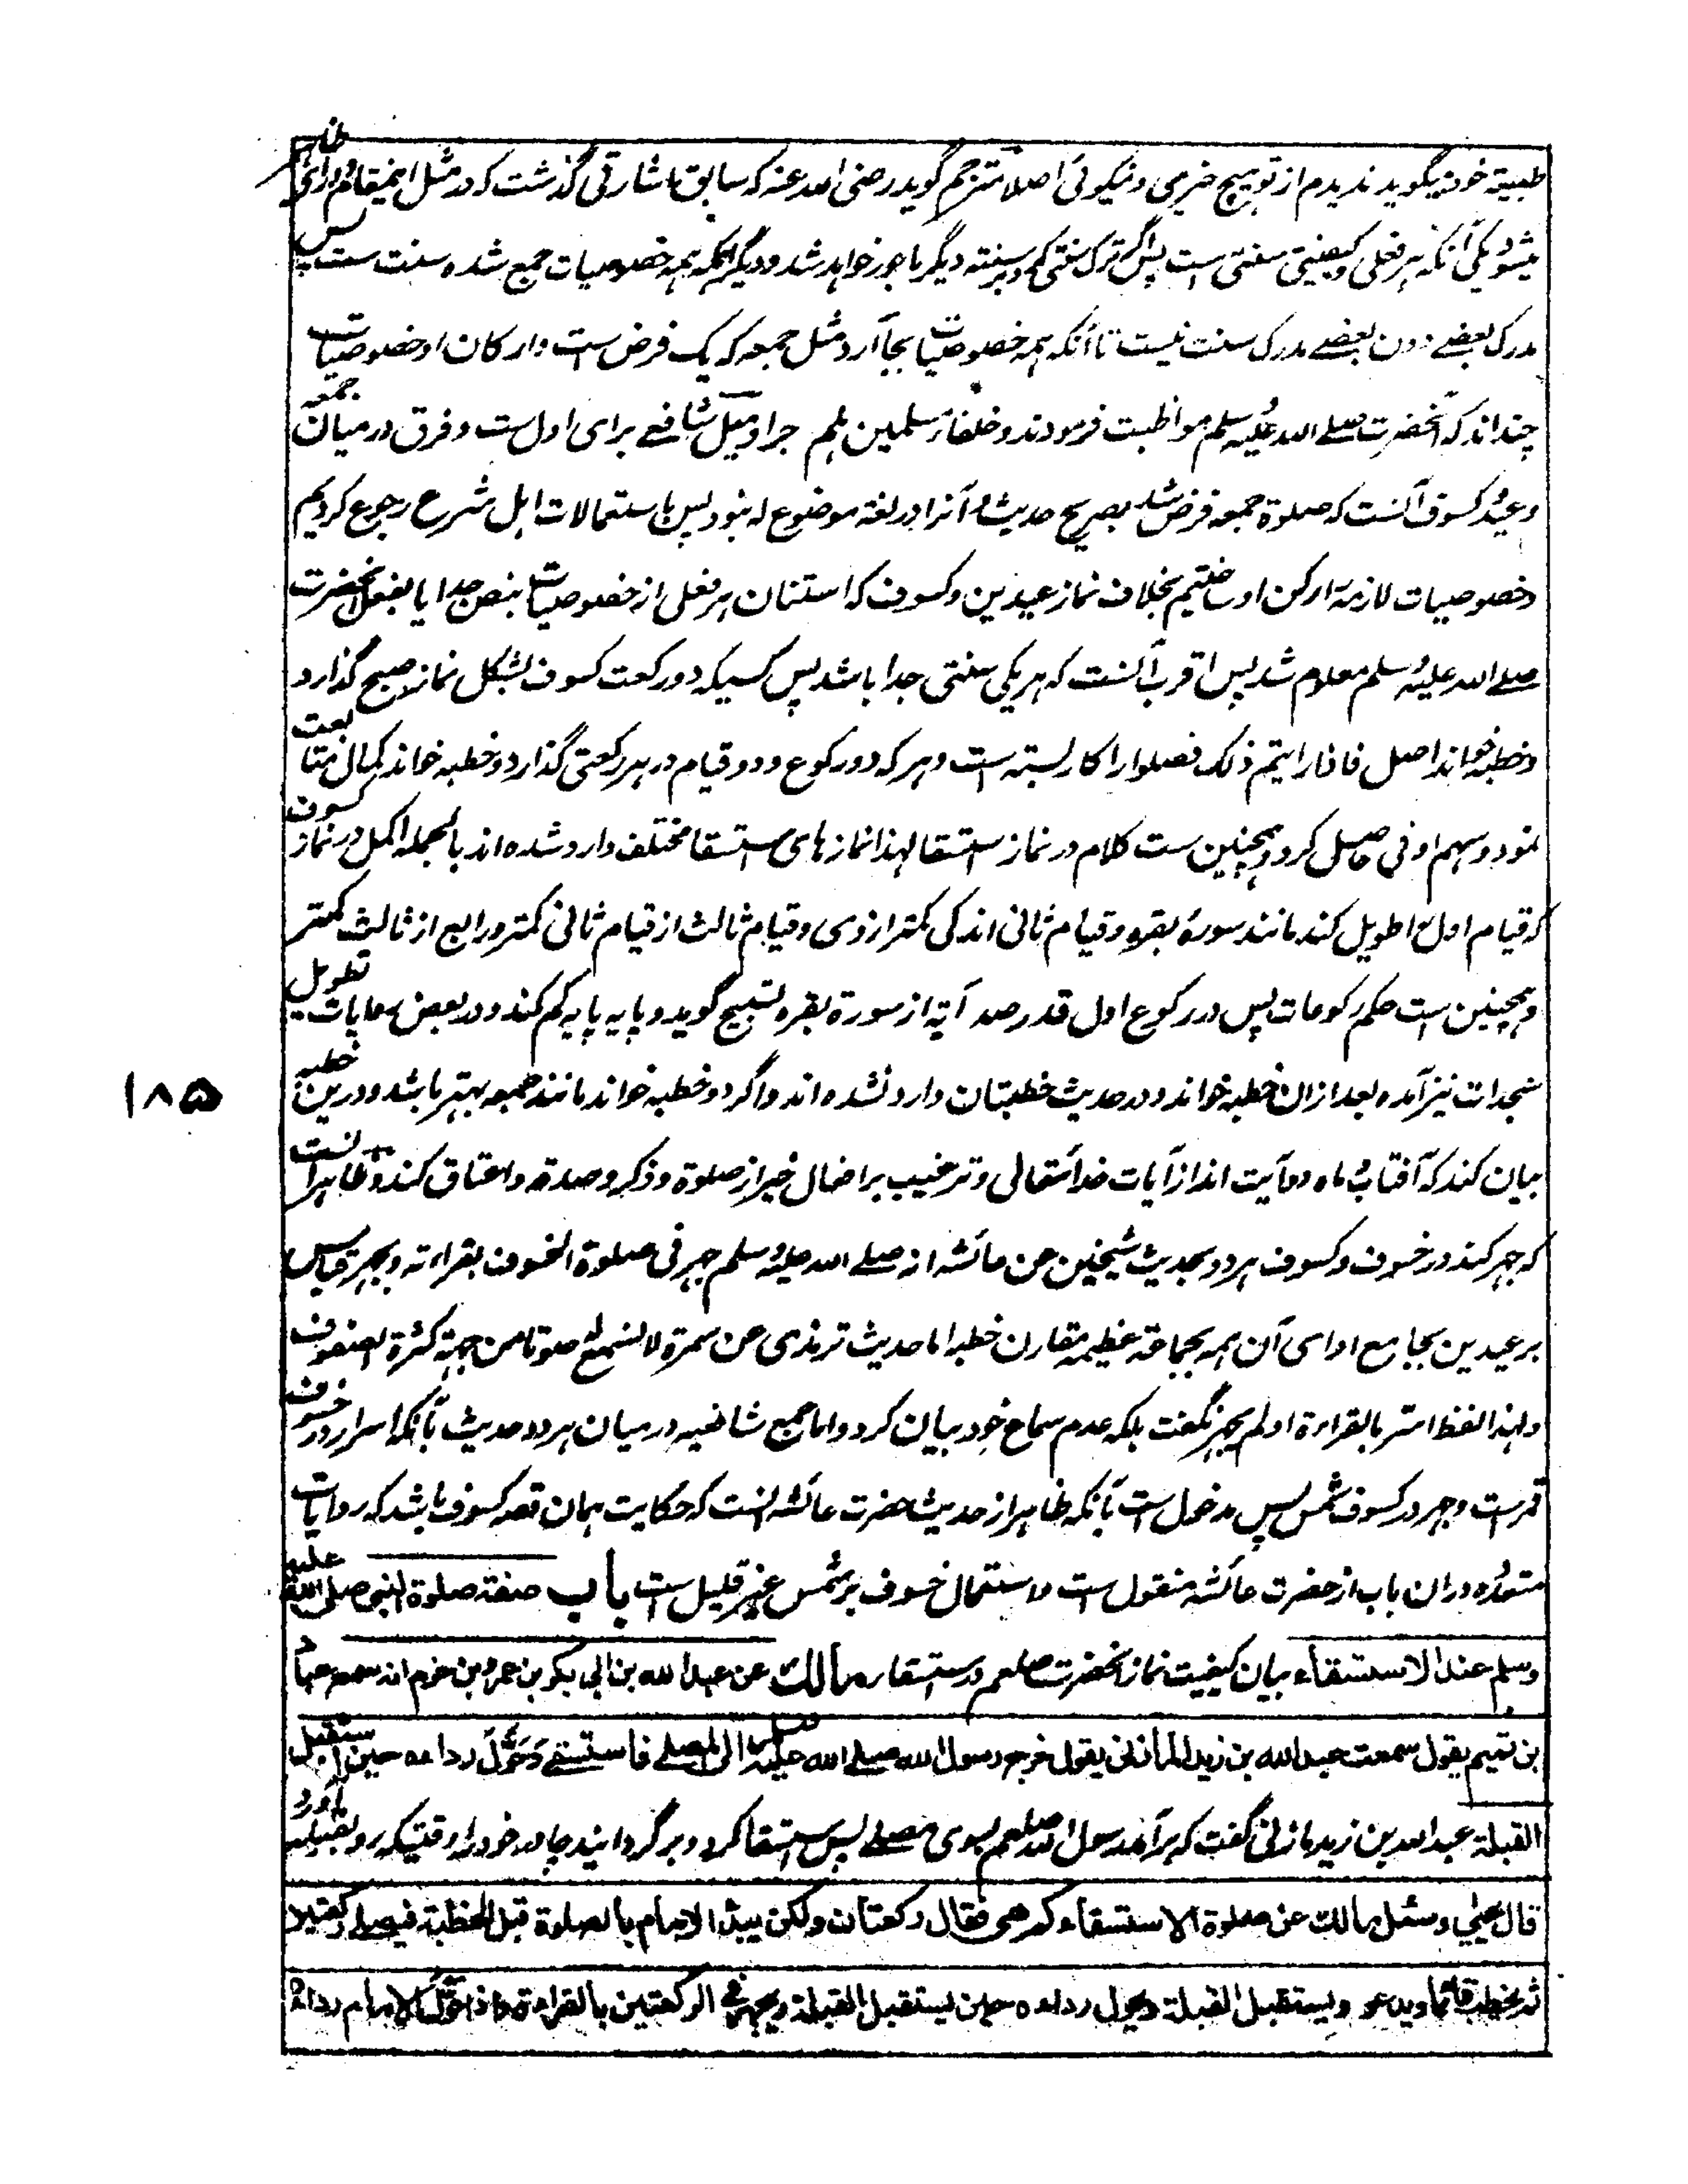 طبیعته خود بگوید ندیدم از تو هیچ خیری و نیکوئی اصلا مترجم گوید رضی الله عنه که سابق اشارتی گذشت که در مثل اینمقام دو رای ظاهر
میشود یکی آنکه هر فعلی و کیفیتی سنتی است پس اگر ترک سنتی کرد بسنته دیگر ماجور خواهد شد و دیگر آنکه همه خصوصیات جمع شده سنت ست پس
مدرک بعضے دون بعضے مدرک سنت نیست تا آنکه همه خصوصیات بجا آرد مثل جمعه که یک فرض است و ارکان او خصوصیات
چنداند که آنحضرت صلے الله علیه وسلم مواظبت فرمودند و خلفاء مسلمین هلم جرا و میل شافعے برای اول ست و فرق در میان جمعه
و عید و کسوف آنست که صلوة جمعه فرض شد بصریح حدیث و آنرا در لغة موضوع له نبود پس باستعمالات اهل شرع رجوع کردیم
و خصوصیات لازمه ارکن او ساختیم بخلاف نماز عیدین و کسوف که استنان هر فعلی از خصوصیات بنص جدا یا بفعل آنحضرت
صلے الله علیه وسلم معلوم شد پس اقرب آنست که هر یکی سنتی جدا باشد پس کسیکه دو رکعت کسوف بشکل نماز صبح گذارد
و خطبه خواند اصل فاذا رایتم ذلک فصلوا را کار بسته است و هر که دو رکوع و دو قیام در هر رکعتی گذارد و خطبه خواند کمال متابعت
نمود و سهم اوفی حاصل کرد و همچنین ست کلام در نماز استسقا لهذا نمازهای استسقا مختلف وارد شده اند بالجمله اکمل در نماز کسوف
که قیام اول را طویل کند مانند سورهٔ بقره و قیام ثانی اندکی کمتر از وی و قیام ثالث از قیام ثانی کمتر و رابع از ثالث کمتر
و همچنین ست حکم رکوعات پس در رکوع اول قدر صد آیة از سورة بقره تسبیح گوید و پایه پایه کم کند و در بعض روایات تطویل
سجدات نیز آمده بعد ازان خطبه خواند و در حدیث خطبتان وارد نشده اند و اگر دو خطبه خواند مانند جمعه بهتر باشد و درین خطبه
بیان کند که آفتاب و ماه دو آیت اند از آیات خدا تعالی و ترغیب بر افعال خیر از صلوة و ذکر و صدقه و اعتاق کند و ظاهر آنست
که جهر کند در خسوف و کسوف هر دو بحدیث شیخین عن عائشه انه صلے الله علیه وسلم جهر فی صلوة الخسوف بقراءته و بجهر قیاس
بر عیدین بجامع ادای آن همه بجماعة عظیمه مقارن خطبه اما حدیث ترمذی عن سمرة لا نسمع له صوتا من جهة کثرة الصفوف
و لهذا لفظ اسر بالقراءة او لم یجهر نگفت بلکه عدم سماع خود بیان کرد و اما جمع شافعیه در میان هر دو حدیث بآنکه اسرار در خسوف
قمر ست و جهر در کسوف شمس پس مدخول است بآنکه ظاهر از حدیث حضرت عائشه آنست که حکایت همان قصه کسوف باشد که روایات
متعدده دران باب از حضرت عائشه منقول ست و استعمال خسوف بر شمس غیر قلیل ست باب صفة صلوة النبی صلی الله علیه
وسلم عند الاستسقاء بیان کیفیت نماز آنحضرت صلعم در استسقاء مالک عن عبد الله بن ابی بکر بن عمرو بن حزم انه سمع عباد
بن تمیم یقول سمعت عبد الله بن زید المازنی یقول خرج رسول الله صلے الله علیه وسلم الی المصلے فاستسقے وحول رداءه حین استقبل
القبلة عبد الله بن زید مازنی گفت که برآمد رسول الله صلعم بسوی مصلے پس استسقا کرد و برگردانید چادر خود را وقتیکه رو بقبله آورد
قال یحیی وسئل مالک عن صلوة الاستسقاء کم هی فقال رکعتان ولکن یبدأ الامام بالصلوة قبل الخطبة فیصلی رکعتین
ثم یخطب قائما ویدعو ویستقبل القبلة ویحول رداءه حین یستقبل القبلة ویجهر فی الرکعتین بالقراءة واذا حول الامام رداءه
۱۸۵